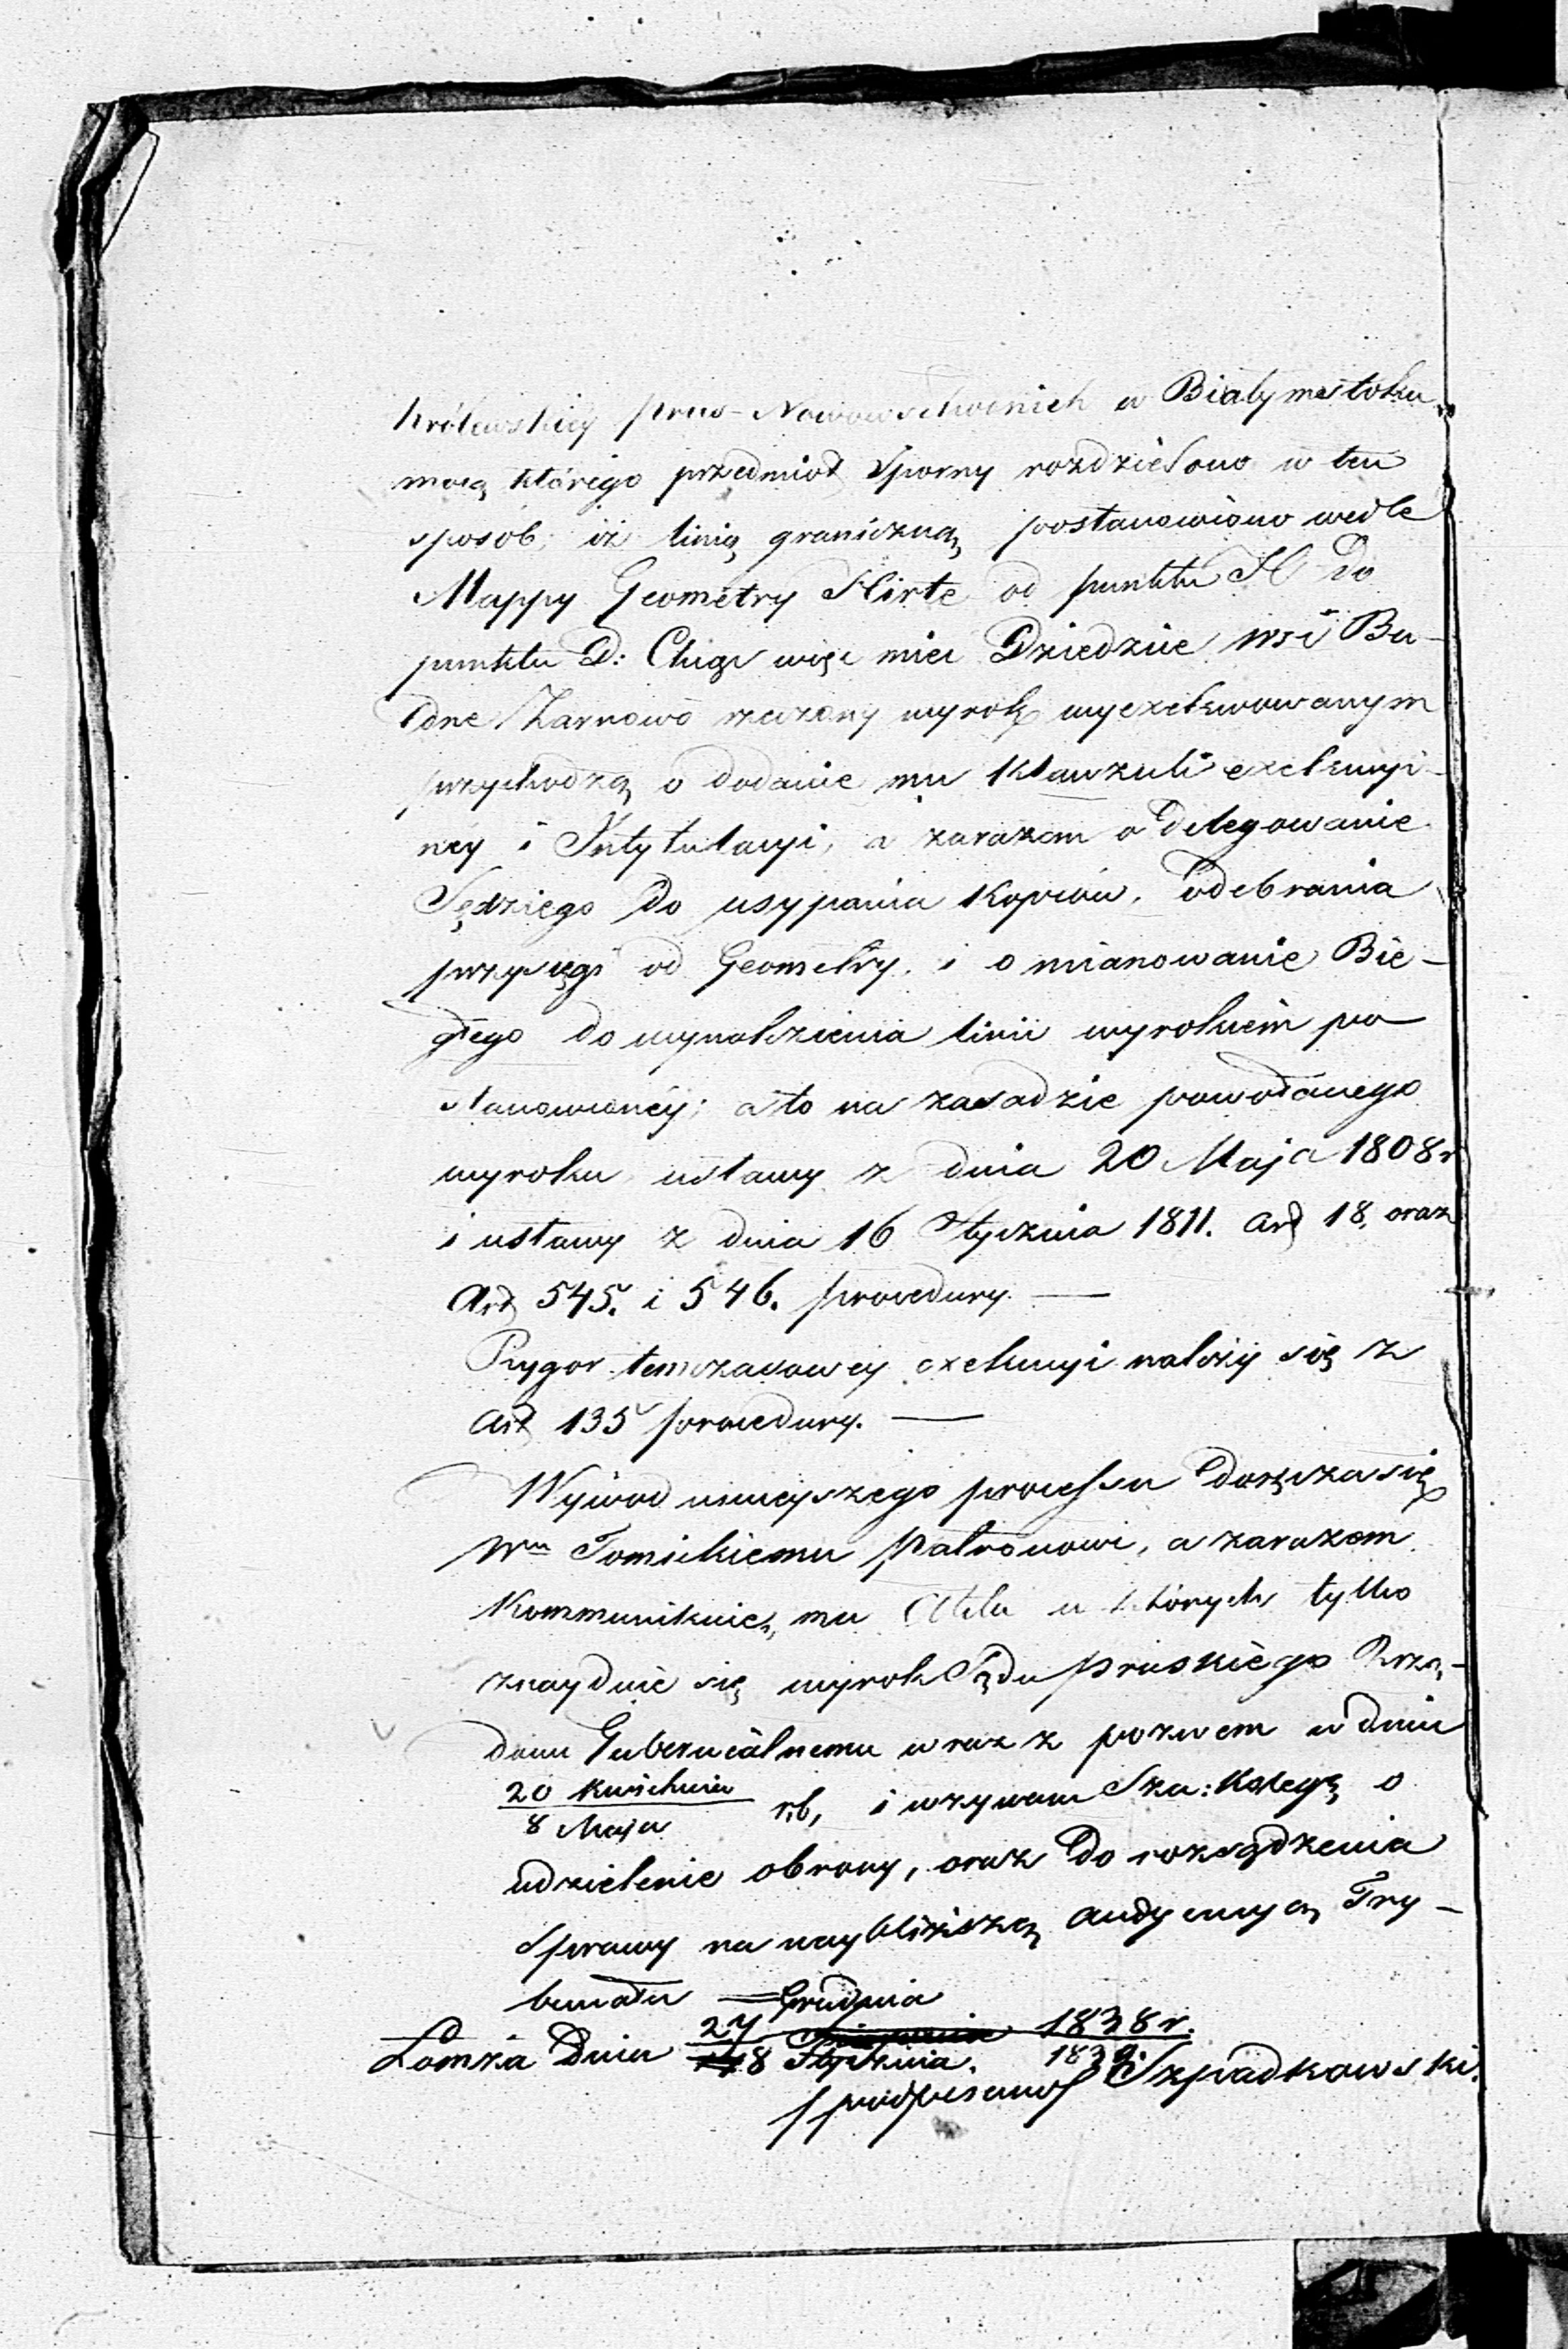 Królewskiey prus-Nowowschodnich w Białymstoku
mocą którego przedmiot sporny rozdzielono w ten
sposób, iż linią graniczną postanowiono wedle
Mappy Geometry Hirte od punktu H do
punktu D: Chcąc więc mieć Dziedzice wsi Bu-
dne Żarnowo rzeczony wyrok wyexekwowanym
przychodzą o dodanie mu Klauzuli exekucyi-
ney i Intytulacyi, a zarazem o delegowanie
Sędziego do usypania Kopców, odebrania
przysięgi od Geometry, i o mianowanie Bie-
głego do wynalezienia linii wyrokiem po
stanowioney; a to na zasadzie powołanego
wyroku ustawy z dnia 20 Maja 1808 r
i ustawy z dnia 16 Stycznia 1811. Art 18, oraz
Art 545. i 546. procedury. —
Rygor temczasowey exekucyi należy się z
Art 135 procedury. —
Wywod ninieyszego processu doręcza się
Wmu Tomickiemu Patronowi, a zarazem
Kommunikuie mu Akta w których tylko
znayduie się wyrok Sądu pruskiego Rzą-
dowi Gubernialnemu wraz z pozwem w dniu
20 Kwietnia / 8 Maja r.b, i wzywam Sza: Kolegę o
udzielenie obrony, oraz do rozsądzenia
sprawy na naybliższą audyencyą Try-
bunału —
Grudnia
Łomża Dnia 27 1838 r.
8 Stycznia. 1839
/podpisano/ Szpadkowski.